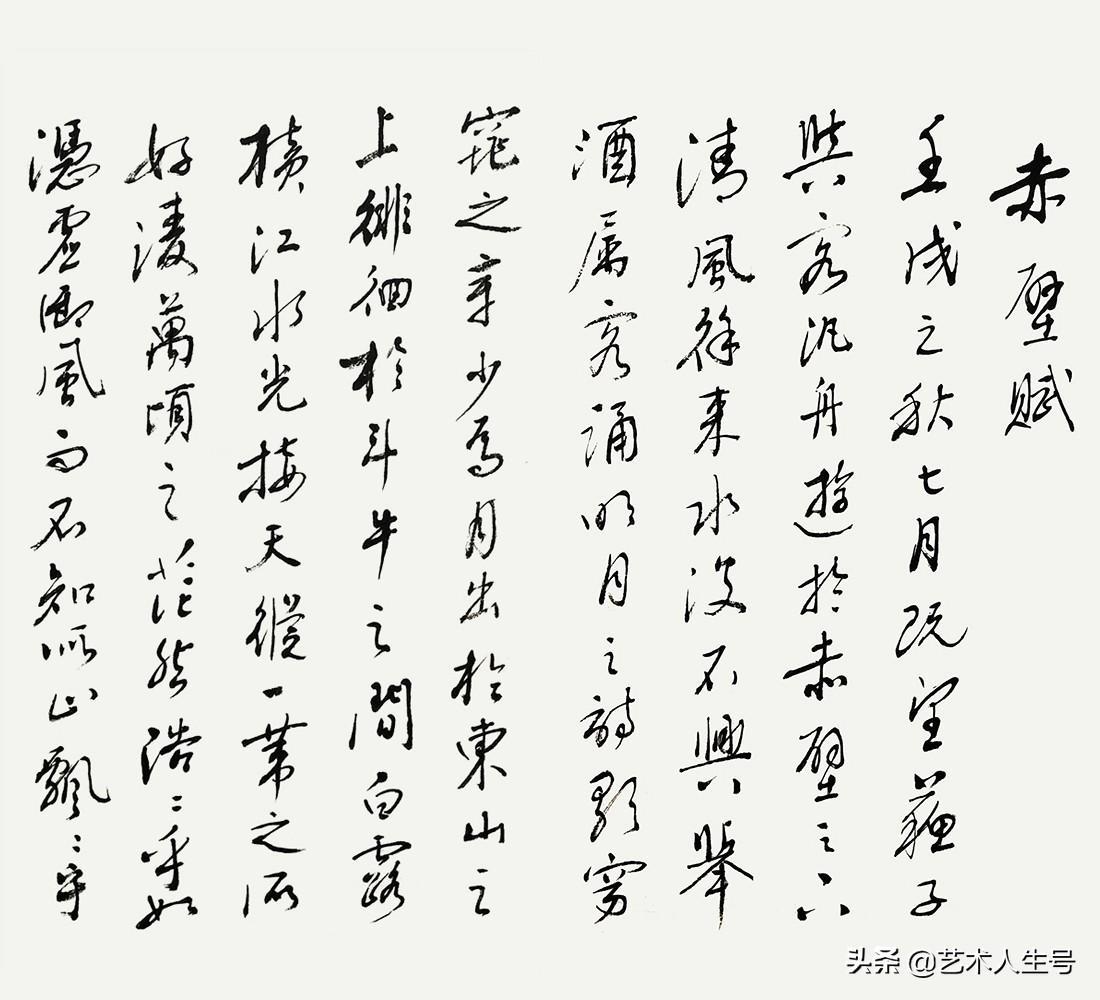 赤壁賦
壬戌之秋七月既望蘇子
與客泛舟遊於赤壁之下
清風徐來水波不興舉
酒属客誦明月之詩歌窈
窕之章少焉月出於東山之
上徘徊於斗牛之間白露
橫江水光接天縱一葦之所
如凌萬頃之茫然浩〻乎如
憑虛御風而不知所止飄〻乎
头条 @艺术人生号